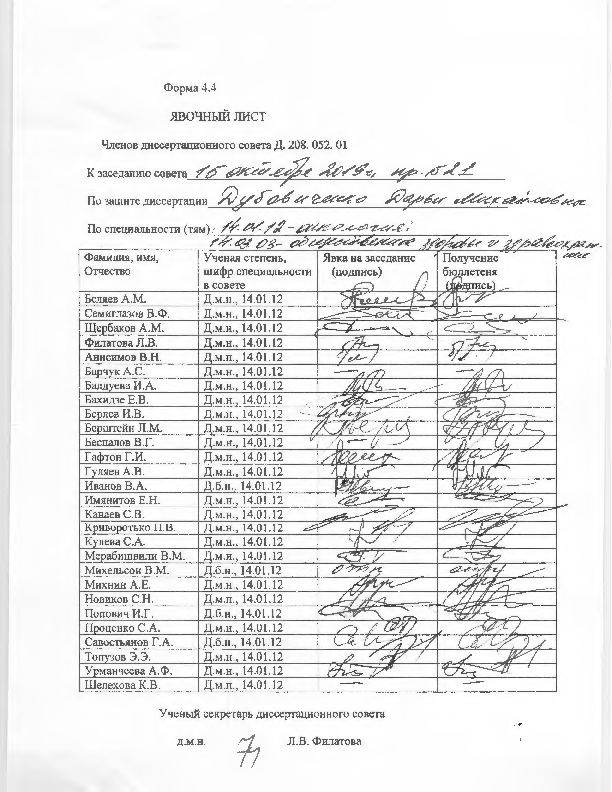 Форма 4.4
ЯВОЧНЫЙ ЛИСТ
Членов диссертационного совета Д. 208. 052. 01
К заседанию совета 15 октября 2019 г. пр. № 21
По защите диссертации Дубовиченко Дарьи Михайловны
По специальности (тям): 14.01.12 - онкология;
14.02.03 - общественное здоровье и здравоохранение
Фамилия, имя, Отчество Ученая степень, шифр специальности в совете Явка на заседание (подпись) Получение бюллетеня (подпись)
Беляев А.М. Д.м.н., 14.01.12
Семиглазов В.Ф. Д.м.н., 14.01.12
Щербаков А.М. Д.м.н., 14.01.12
Филатова Л.В. Д.м.н., 14.01.12
Анисимов В.Н. Д.м.н., 14.01.12
Барчук А.С. Д.м.н., 14.01.12
Балдуева И.А. Д.м.н., 14.01.12
Бахидзе Е.В. Д.м.н., 14.01.12
Берлев И.В. Д.м.н., 14.01.12
Берштейн Л.М. Д.м.н., 14.01.12
Беспалов В.Г. Д.м.н., 14.01.12
Гафтон Г.И. Д.м.н., 14.01.12
Гуляев А.В. Д.м.н., 14.01.12
Иванов В.А. Д.б.н., 14.01.12
Имянитов Е.Н. Д.м.н., 14.01.12
Канаев С.В. Д.м.н., 14.01.12
Криворотько П.В. Д.м.н., 14.01.12
Кулева С.А. Д.м.н., 14.01.12
Мерабишвили В.М. Д.м.н., 14.01.12
Михельсон В.М. Д.б.н., 14.01.12
Михнин А.Е. Д.м.н., 14.01.12
Новиков С.Н. Д.м.н., 14.01.12
Попович И.Г. Д.б.н., 14.01.12
Проценко С.А. Д.м.н., 14.01.12
Савостьянов Г.А. Д.б.н., 14.01.12
Топузов Э.Э. Д.м.н., 14.01.12
Урманчеева А.Ф. Д.м.н., 14.01.12
Шелехова К.В. Д.м.н., 14.01.12
Ученый секретарь диссертационного совета
д.м.н. Л.В. Филатова